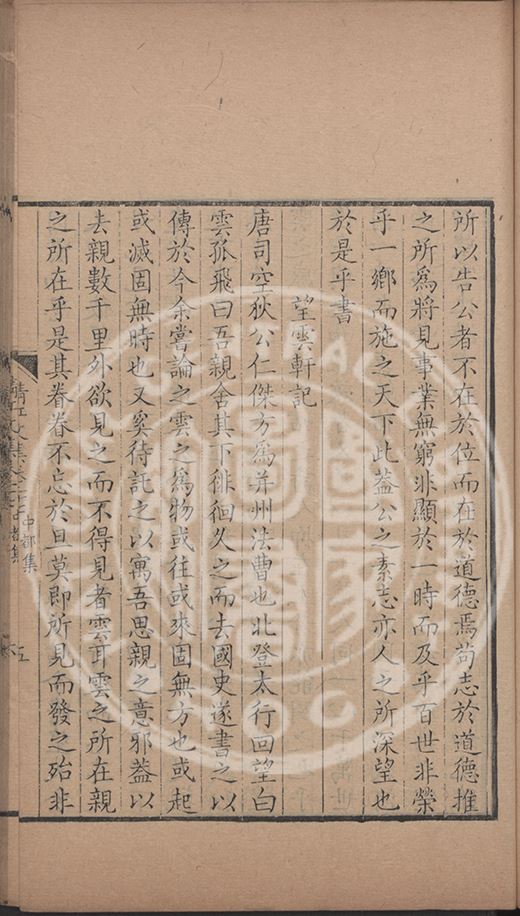 所以告公者不在於位而在於道德焉苟志於道德推
之所爲將見事業無窮非顯於一時而及乎百世非榮
乎一鄉而施之天下此葢公之素志亦人之所深望也
於是乎書
望雲軒記
唐司空狄公仁傑方爲并州法曹也北登太行回望白
雲孤飛曰吾親舍其下徘徊久之而去國史遂書之以
傳於今余嘗論之雲之爲物或往或來固無方也或起
或滅固無時也又奚待託之以寓吾思親之意邪葢以
去親數千里外欲見之而不得見者雲耳雲之所在親
之所在乎是其眷眷不忘於旦莫即所見而發之殆非
中都集